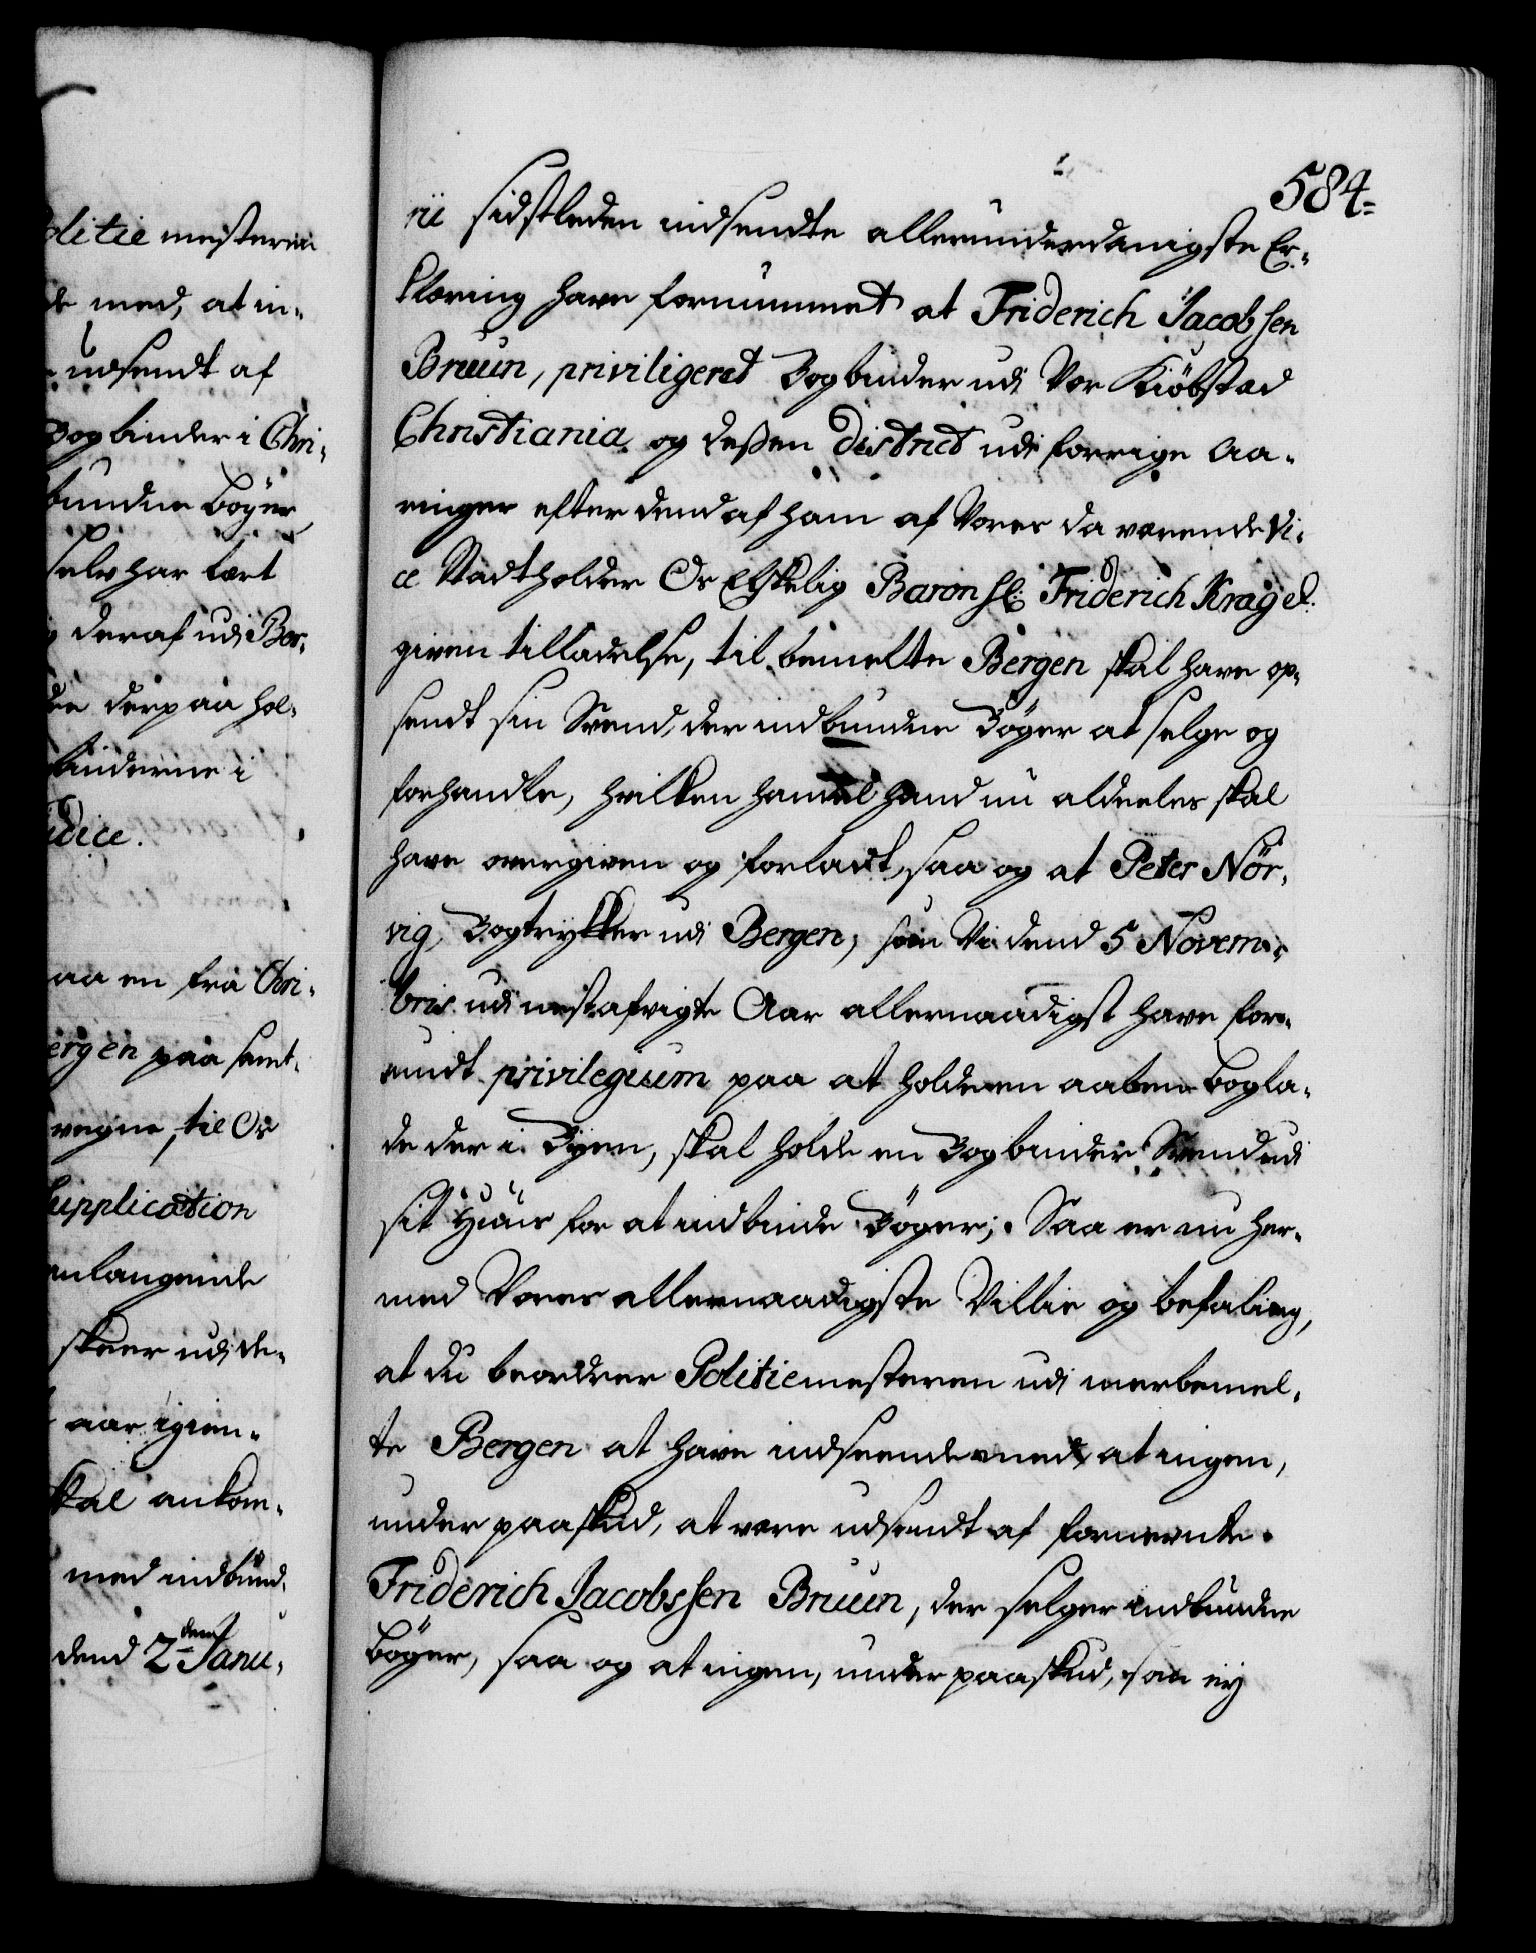 olitie mesteren
de med, at in-
udsendt af
Bogbinder i Chri-
bundne bøger
selv har lært
deraf udi Ber-
den derpaa hol-
binderne i
udice.
aa en fra Chri-
ergen paa samt-
vegne, til Os
Supplication
anlangende
skeer udi de-
aar igien-
skal ankom-
med indbund-
dend 2den Janu-
584
rii sidstleden indsendte allerunderdanigste Er-
klæring have fornummet at Friderich Jacobsen
Bruun, priviligeret Bogbinder udi Vor Kiöbstad
Christiania og deßen District udi forrige Aa-
ringer efter dend af ham af Vores da værende Vi-
ce Stadtholder Os Elskelig Baron Hl: Friderich Krag el:
given tilladelse, til bemelte Bergen skal have op-
sendt sin Svend, der indbundne Bøger at selge og
forhandle, hvilken handel hand nu aldeeles skal
have overgiven og forladt, saa og at Peter Nör-
vig, Bogtrykker udi Bergen, som Vi dend 5 Novem-
bris udi nestafvigte Aar allernaadigst have for-
undt privilegium paa at holde en aaben bogla-
de der i Byen, skal holde en Bogbinder Svend udi
sit Huus for at indbinde Bøger; Saa er nu her-
med Vores allernaadigste Villie og befaling,
at du beordrer Politiemesteren udi meerbemel-
te Bergen at have indseende med, at ingen,
under paaskud, at være udsendt af fornevnte
Friderich Jacobssen Bruun, der selger indbundne
bøger, saa og at ingen, under paaskud, som ey